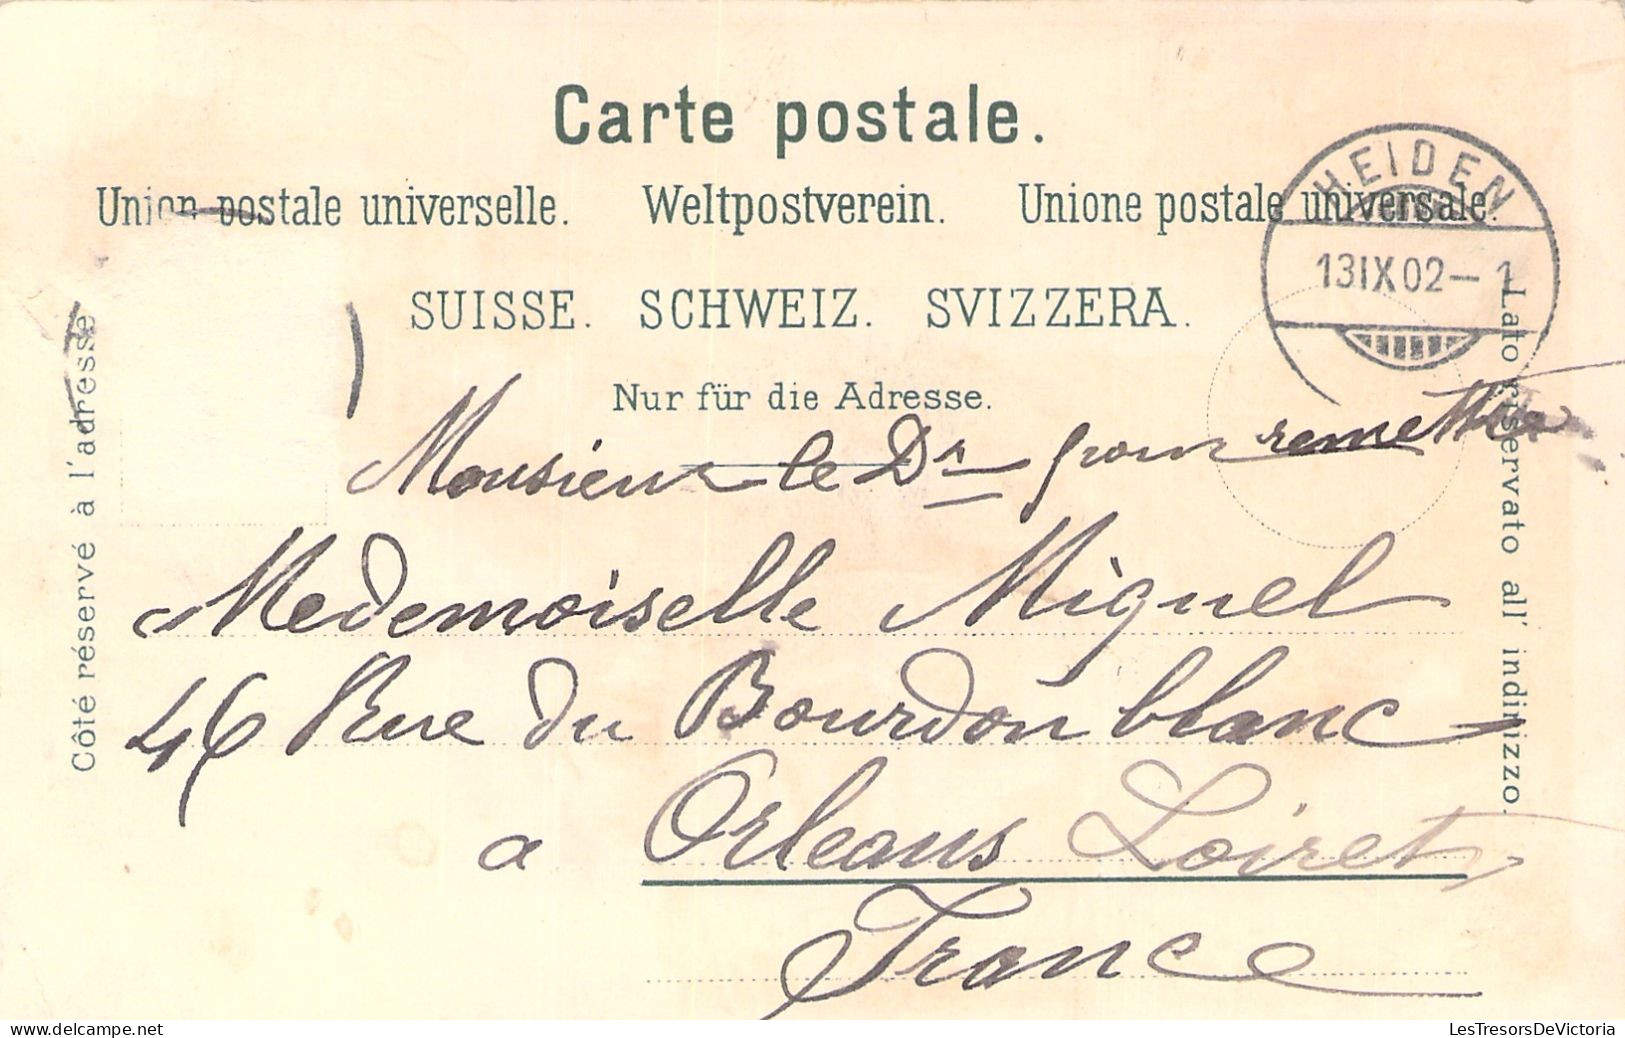 Carte postale.
Union postale universelle. Weltpostverein. Unione postale universale.
HEIDEN
13 IX 02 – 1
SUISSE. SCHWEIZ. SVIZZERA.
Nur für die Adresse.
Côté réservé à l'adresse
Lato riservato all' indirizzo.
Monsieur le Dr pour remettre
Medemoiselle Miguel
46 Rue du Bourdon blanc
a Orleans Loiret
France
delcampe.net
LesTresorsDeVictoria